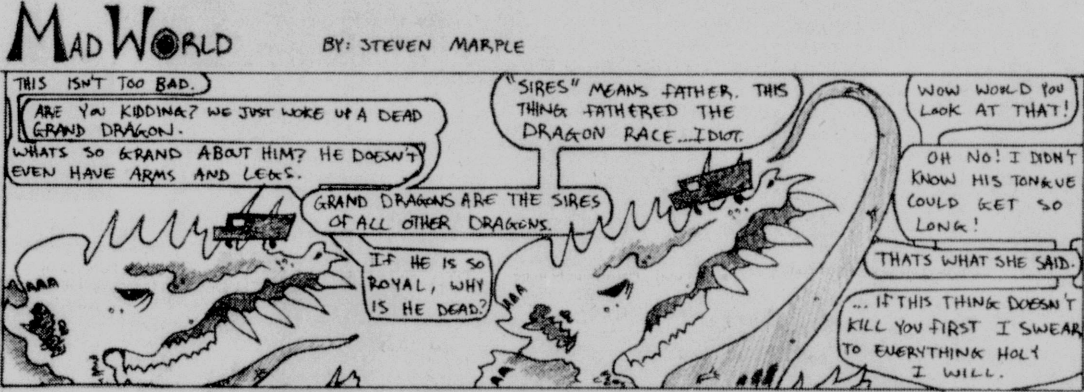 MAD WORLD
BY: STEVEN MARPLE
THIS ISN'T TOO BAD.
ARE YOU KIDDING? WE JUST WOKE UP A DEAD
GRAND DRAGON.
WHATS SO GRAND ABOUT HIM? HE DOESN'T
EVEN HAVE ARMS AND LEGS.
GRAND DRAGONS ARE THE SIRES
OF ALL OTHER DRAGONS.
IF HE IS SO
ROYAL, WHY
IS HE DEAD?
"SIRES" MEANS FATHER. THIS
THING FATHERED THE
DRAGON RACE...IDIOT.
WOW WOULD YOU
LOOK AT THAT!
OH NO! I DIDN'T
KNOW HIS TONGUE
COULD GET SO
LONG!
THATS WHAT SHE SAID.
... IF THIS THING DOESN'T
KILL YOU FIRST I SWEAR
TO EVERYTHING HOLY
I WILL.